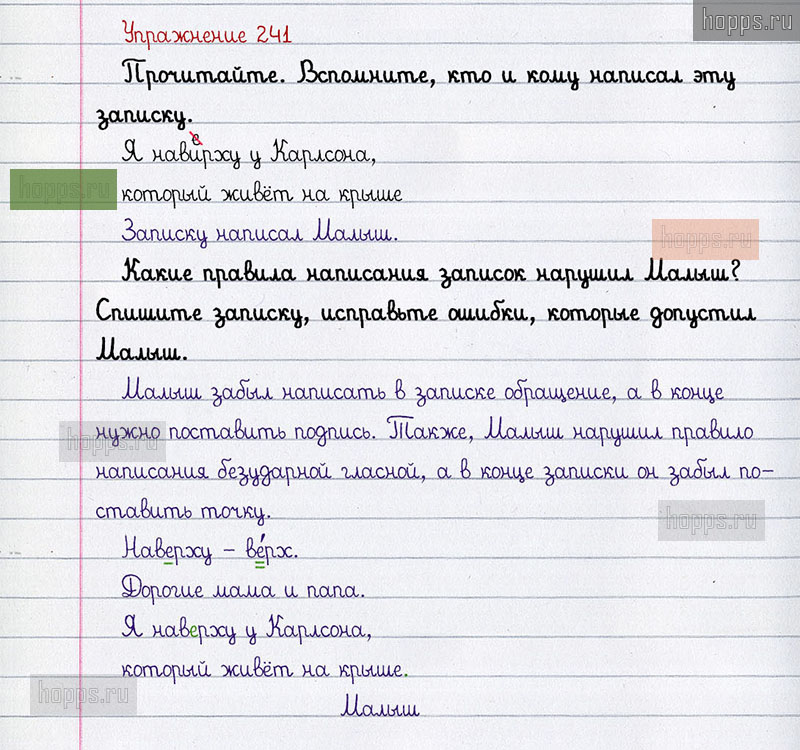 hopps.ru
Упражнение 241
Прочитайте. Вспомните, кто и кому написал эту
записку.
е
Я навирху у Карлсона,
hopps.ru
который живёт на крыше
Записку написал Малыш.
hopps.ru
Какие правила написания записок нарушил Малыш?
Спишите записку, исправьте ошибки, которые допустил
Малыш.
Малыш забыл написать в записке обращение, а в конце
нужно поставить подпись. Также, Малыш нарушил правило
hopps.ru
написания безударной гласной, а в конце записки он забыл по-
ставить точку.
hopps.ru
Наверху – ве́рх.
Дорогие мама и папа.
Я наверху у Карлсона,
который живёт на крыше.
hopps.ru
Малыш